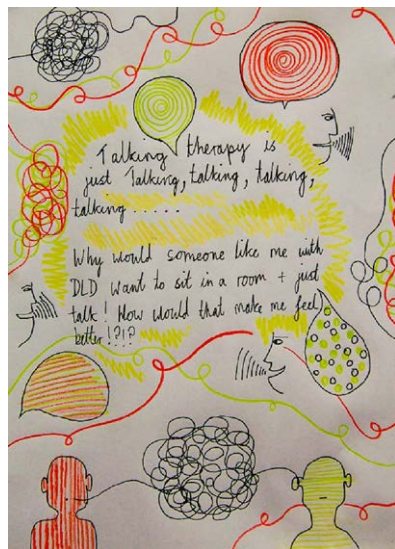 Talking therapy is
just Talking, talking, talking,
talking ......
Why would someone like me with
DLD want to sit in a room + just
talk! How would that make me feel
better!?!?